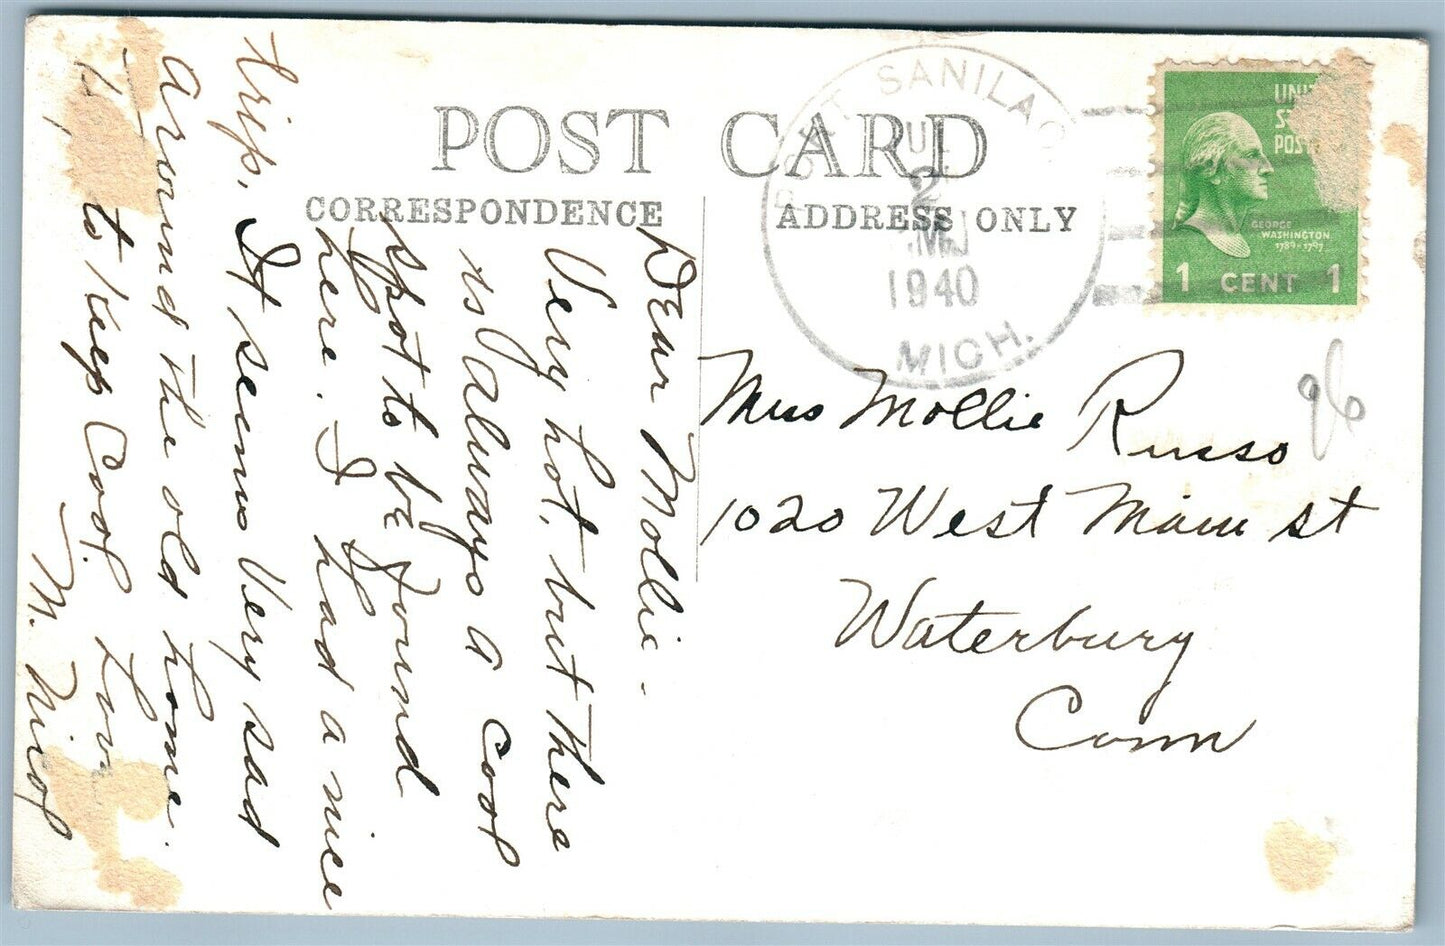 POST CARD
CORRESPONDENCE
ADDRESS ONLY
PORT SANILAC
JUL
2
1940
MICH.
UNIT
S
POST
GEORGE
WASHINGTON
1789-1797
1 CENT 1
96
Miss Mollie Russo
1020 West Main st
Waterbury
Conn
Dear Mollie -
Very hot, but there
is always a cool
spot to be found
here. I had a nice
trip. It seems very sad
around the old home.
to keep Cool. Love
M. Nicol